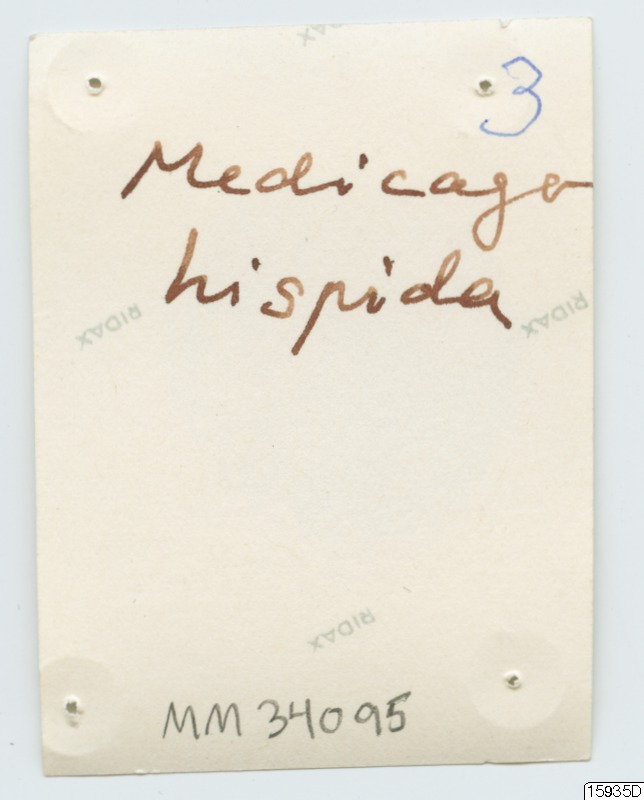 RIDAX
3
Medicago
hispida
RIDAX
RIDAX
RIDAX
MM 34095
15935D